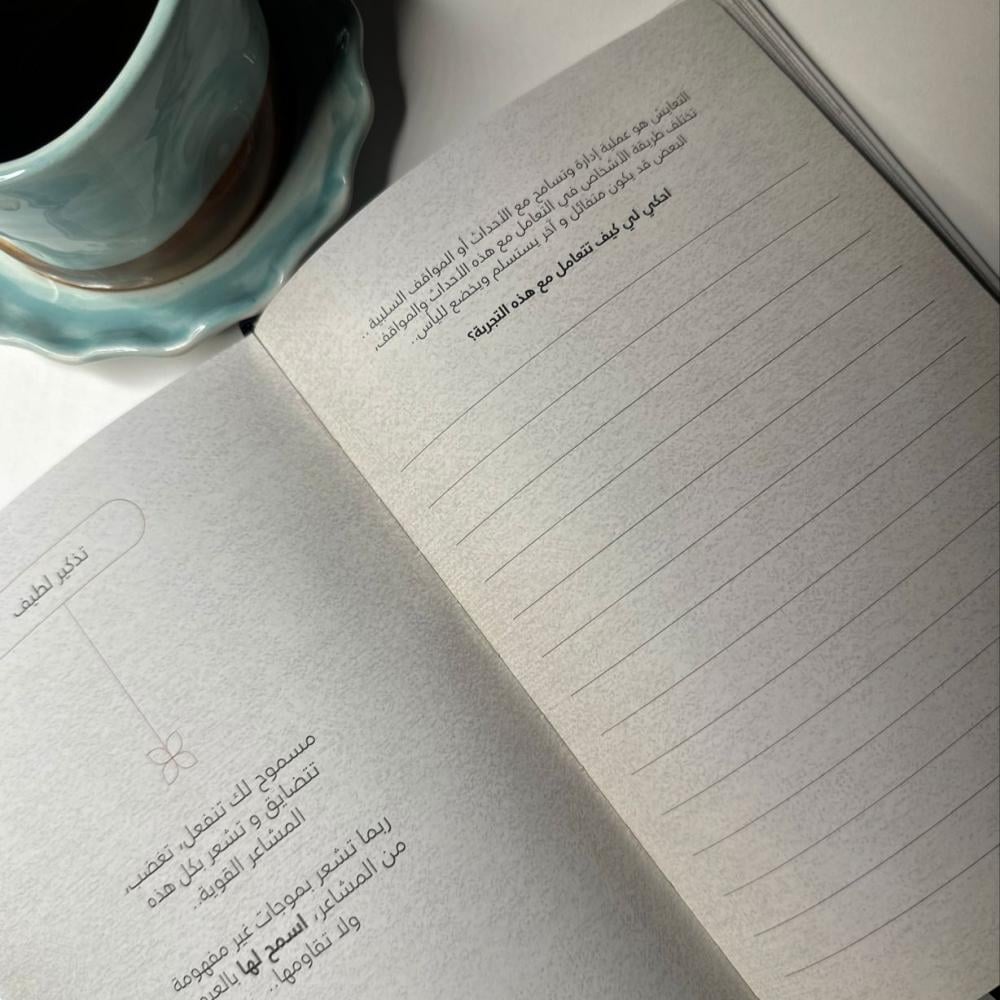 التعايش هو عملية إدارة وتسامح مع الأحداث أو المواقف السلبية ..
تختلف طريقة الأشخاص في التعامل مع هذه الأحداث والمواقف،
البعض قد يكون متفائل و آخر يستسلم ويخضع لليأس..
احكي لي كيف تتعامل مع هذه التجربة؟
تذكير لطيف
مسموح لك تنفعل، تغضب،
تتضايق و تشعر بكل هذه
المشاعر القوية..
ربما تشعر بموجات غير مفهومة
من المشاعر، اسمح لها
ولا تقاومها..